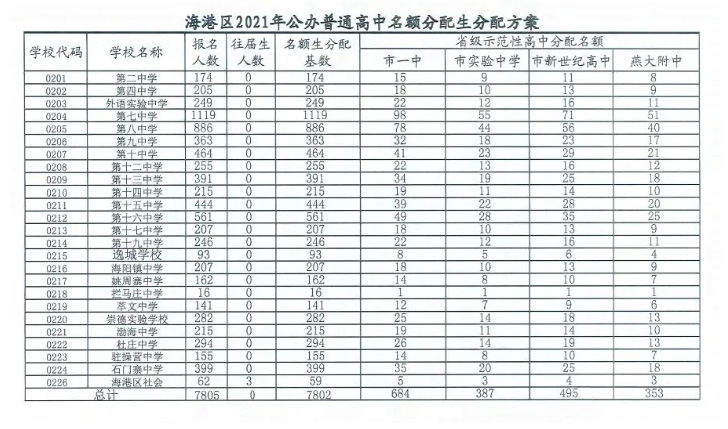 海港区2021年公办普通高中名额分配生分配方案
学校代码 学校名称 报名人数 往届生人数 名额生分配基数 省级示范性高中分配名额
市一中 市实验中学 市新世纪高中 燕大附中
0201 第二中学 174 0 174 15 9 11 8
0202 第四中学 205 0 205 18 10 13 9
0203 外语实验中学 249 0 249 22 12 16 11
0204 第七中学 1119 0 1119 98 55 71 51
0205 第八中学 886 0 886 78 44 56 40
0206 第九中学 363 0 363 32 18 23 17
0207 第十中学 464 0 464 41 23 29 21
0208 第十二中学 255 0 255 22 13 16 12
0209 第十三中学 391 0 391 34 19 25 18
0210 第十四中学 215 0 215 19 11 14 10
0211 第十五中学 444 0 444 39 22 28 20
0212 第十六中学 561 0 561 49 28 35 25
0213 第十七中学 207 0 207 18 10 13 9
0214 第十九中学 246 0 246 22 12 16 11
0215 逸城学校 93 0 93 8 5 6 4
0216 海阳镇中学 207 0 207 18 10 13 9
0217 姚周寨中学 162 0 162 14 8 10 7
0218 拦马庄中学 16 0 16 1 1 1 1
0219 萃文中学 141 0 141 12 7 9 6
0220 崇德实验学校 282 0 282 25 14 18 13
0221 渤海中学 215 0 215 19 11 14 10
0222 杜庄中学 294 0 294 26 14 19 13
0223 驻操营中学 155 0 155 14 8 10 7
0224 石门寨中学 399 0 399 35 20 25 18
0226 海港区社会 62 3 59 5 3 4 3
总计 7805 0 7802 684 387 495 353